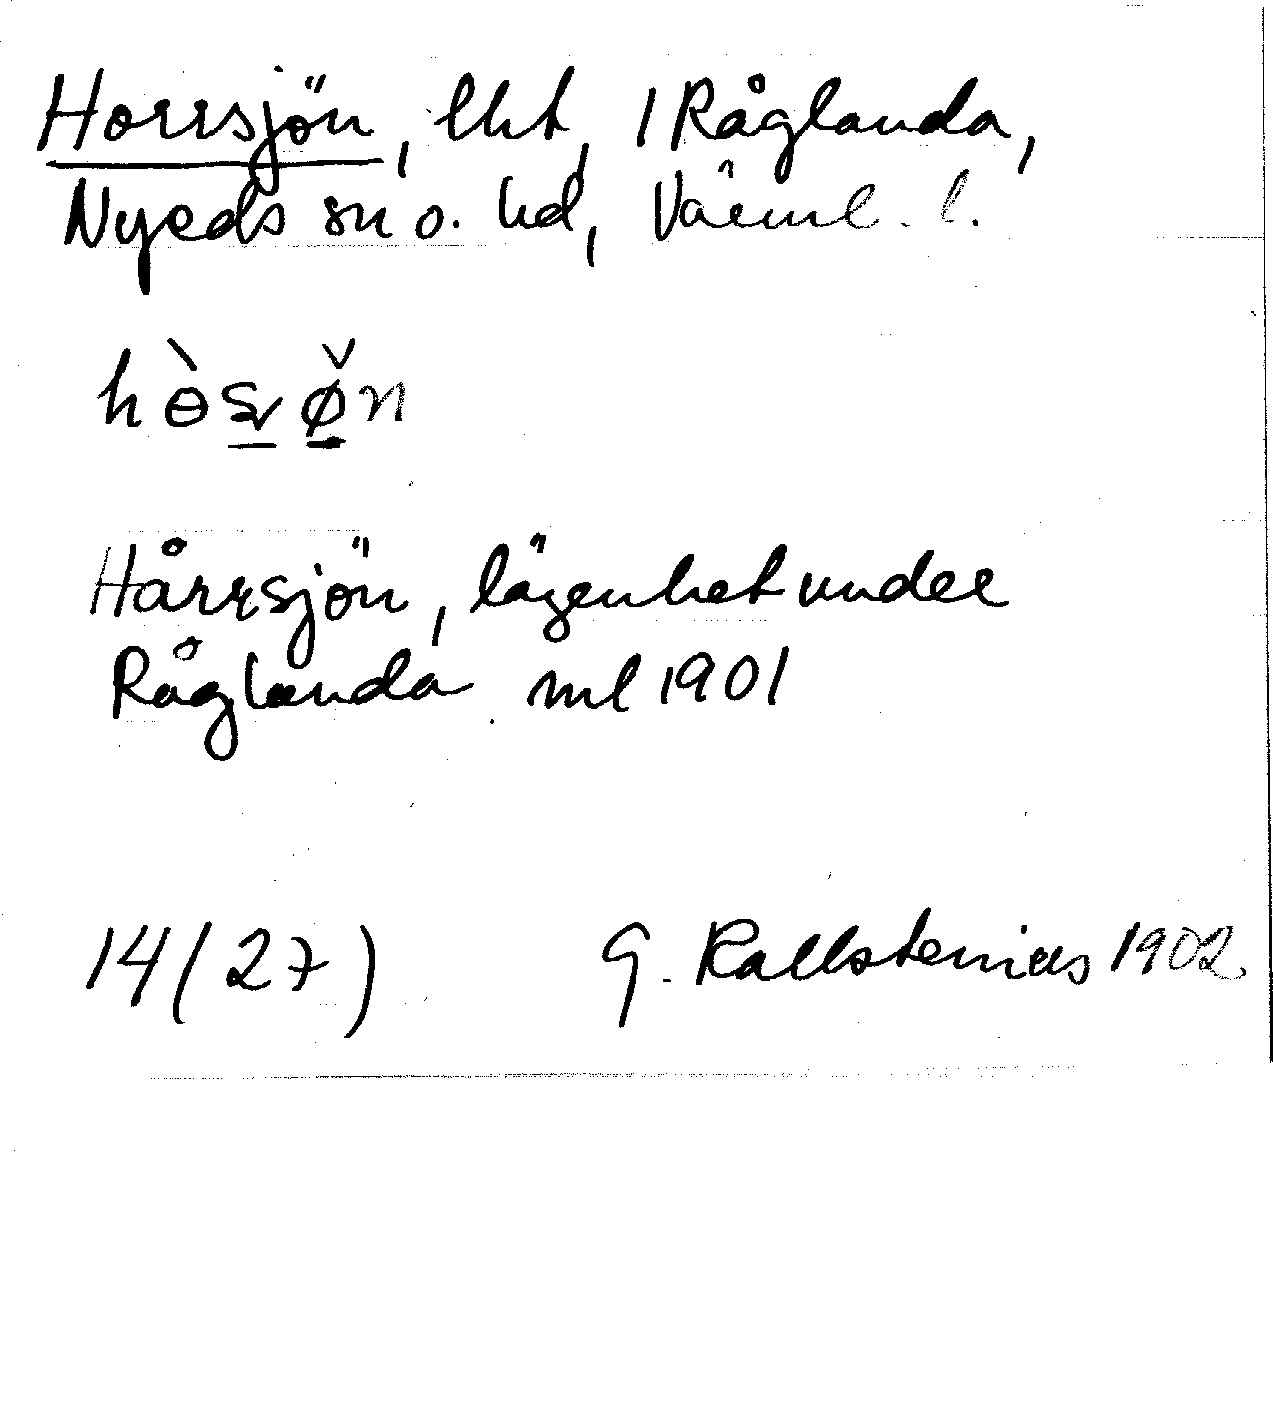 Horrsjön, lht, 1 Råglanda,
Nyeds sn o. hd, Värml. l.
Hårrsjön, lägenhet under
Råglanda ml 1901
14(27) G. Kallstenius 1902